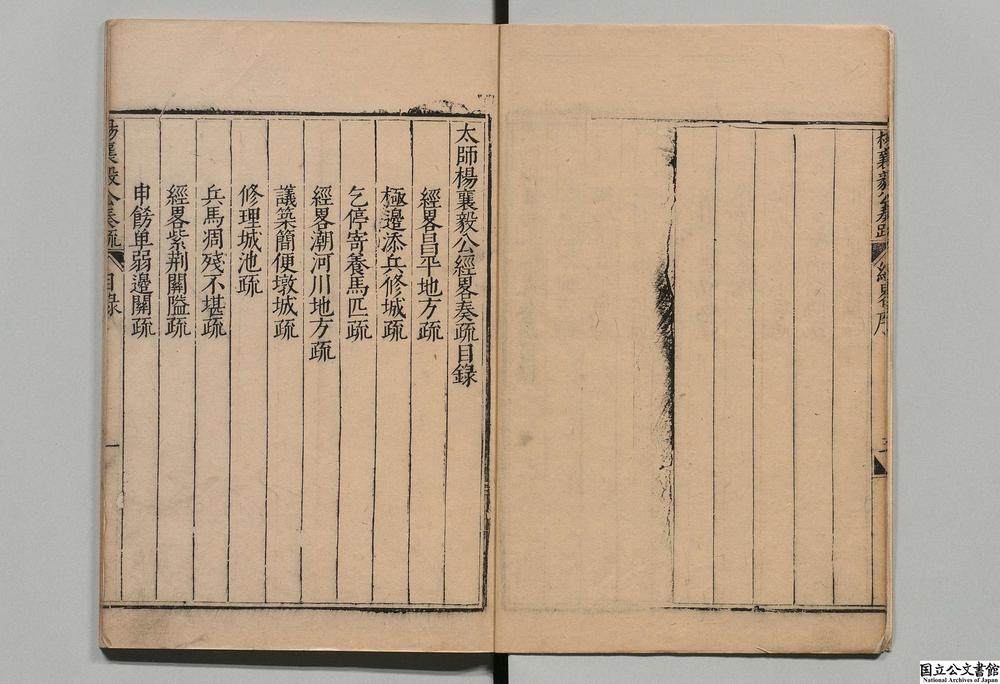 楊襄毅公奏疏
經畧序
太師楊襄毅公經畧奏疏目錄
經畧昌平地方疏
極邊添兵修城疏
乞停寄養馬匹疏
經畧潮河川地方疏
議築簡便墩城疏
修理城池疏
兵馬凋殘不堪疏
經畧紫荆關隘疏
申飭单弱邊關疏
楊襄毅公奏疏
目錄
一
国立公文書館
National Archives of Japan